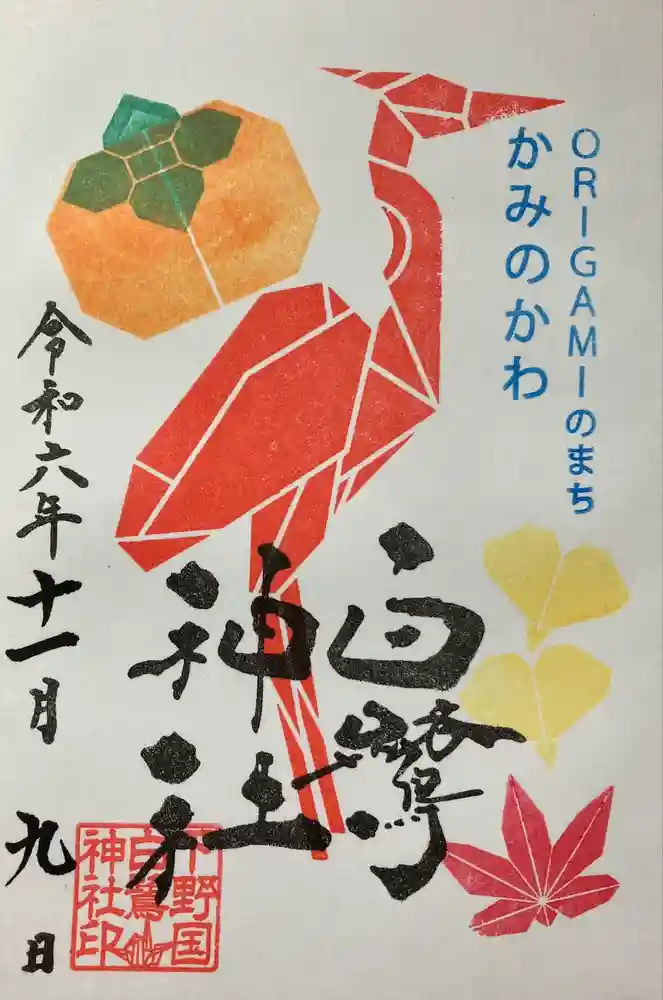 ORIGAMIのまち
かみのかわ
白鷺
神社
令和六年十一月九日
下野国
白鷺
神社印